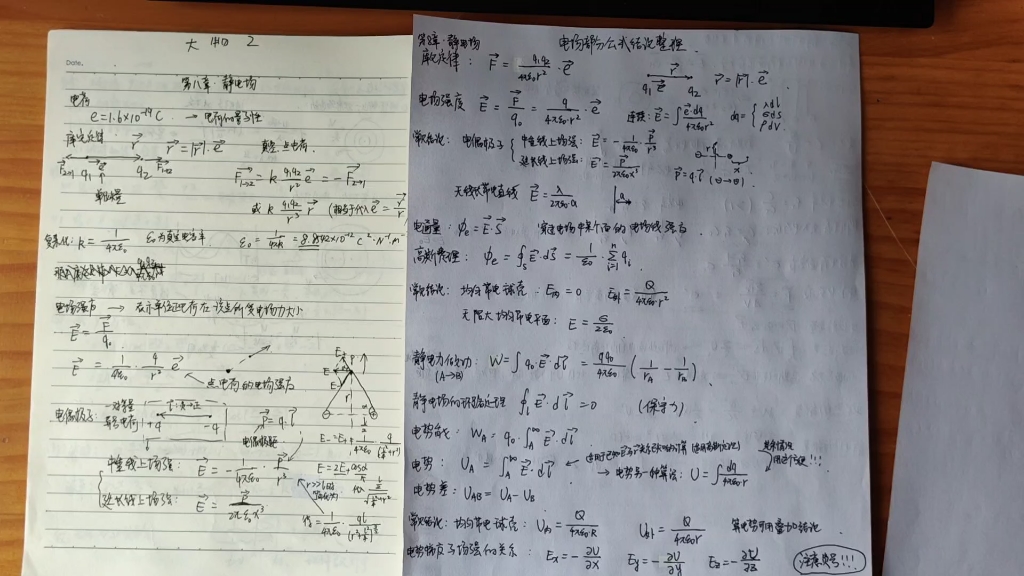 大物2
Date.
第八章 静电场
电荷
e = 1.6×10⁻¹⁹ C → 电荷的量子性
库仑定律 r⃗ r⃗ = |r⃗|·e⃗ 真空 点电荷.
F⃗₂→₁ q₁ e⃗ q₂ F⃗₁→₂ F⃗₁→₂ = k q₁q₂/r² e⃗ = −F⃗₂→₁
单位矢量 或 k q₁q₂/r³ r⃗ (相当于代入 e⃗ = r⃗/r)
k = 1/4πε₀ ε₀为真空电容率 ε₀ = 1/4πk = 8.8542×10⁻¹² C²·N⁻¹·m
电场强度 → 表示单位正电荷在该点所受电场力大小
E⃗ = F⃗/q₀
E⃗ = 1/4πε₀ · q/r² e⃗
点电荷的电场强度
电偶极子 一对等量异号电荷 +q −q P⃗ = q·l⃗
电偶极矩
中垂线上场强: E⃗ = −1/4πε₀ · P⃗/r³
延长线上场强: E⃗ = P⃗/2πε₀x³
E = 2E₊cosα
第8章 静电场 电场部分公式结论整理.
库仑定律: F⃗ = q₁q₂/4πε₀r² · e⃗ r⃗ q₁ e⃗ q₂ r⃗ = |r⃗|·e⃗
电场强度 E⃗ = F⃗/q₀ = q/4πε₀r² · e⃗ 连续: E⃗ = ∫ e⃗dq/4πε₀r² dq = { λdl σds ρdV
常用结论: 电偶极子 { 中垂线上场强: E⃗ = −1/4πε₀ P⃗/r³
延长线上场强: E⃗ = P⃗/2πε₀x³ P⃗ = q l⃗ (⊖→⊕)
无线长带电直线 E⃗ = λ/2πε₀a
电通量: φe = E⃗·S⃗ 穿过电场中某个面的电场线条数
高斯定理: φe = ∮s E⃗·dS⃗ = 1/ε₀ · Σqᵢ
常用结论: 均匀带电球壳: E内 = 0 E外 = Q/4πε₀r²
无限大均匀带电平面: E = σ/2ε₀
静电力做功: W = ∫q₀·E⃗·dl⃗ = qq₀/4πε₀ (1/rA − 1/rB)
(A→B)
静电场的环路定理 ∮l E⃗·dl⃗ = 0 (保守力)
电势能: WA = q₀·∫A^∞ E⃗·dl⃗
电势: UA = ∫A^∞ E⃗·dl⃗ → 电势另一种算法: U = ∫ dq/4πε₀r
电势差: UAB = UA − UB
常用结论: 均匀带电球壳: U内 = Q/4πε₀R U外 = Q/4πε₀r
电势梯度与场强的关系: Ex = −∂U/∂x Ey = −∂U/∂y Ez = −∂U/∂z 注意负号!!!